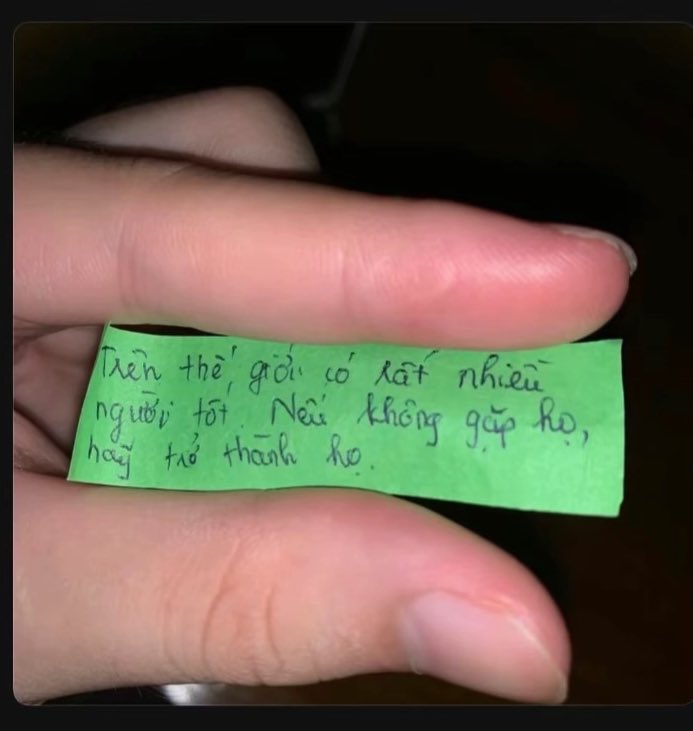 Trên thế giới có rất nhiều
người tốt. Nếu không gặp họ,
hãy trở thành họ.